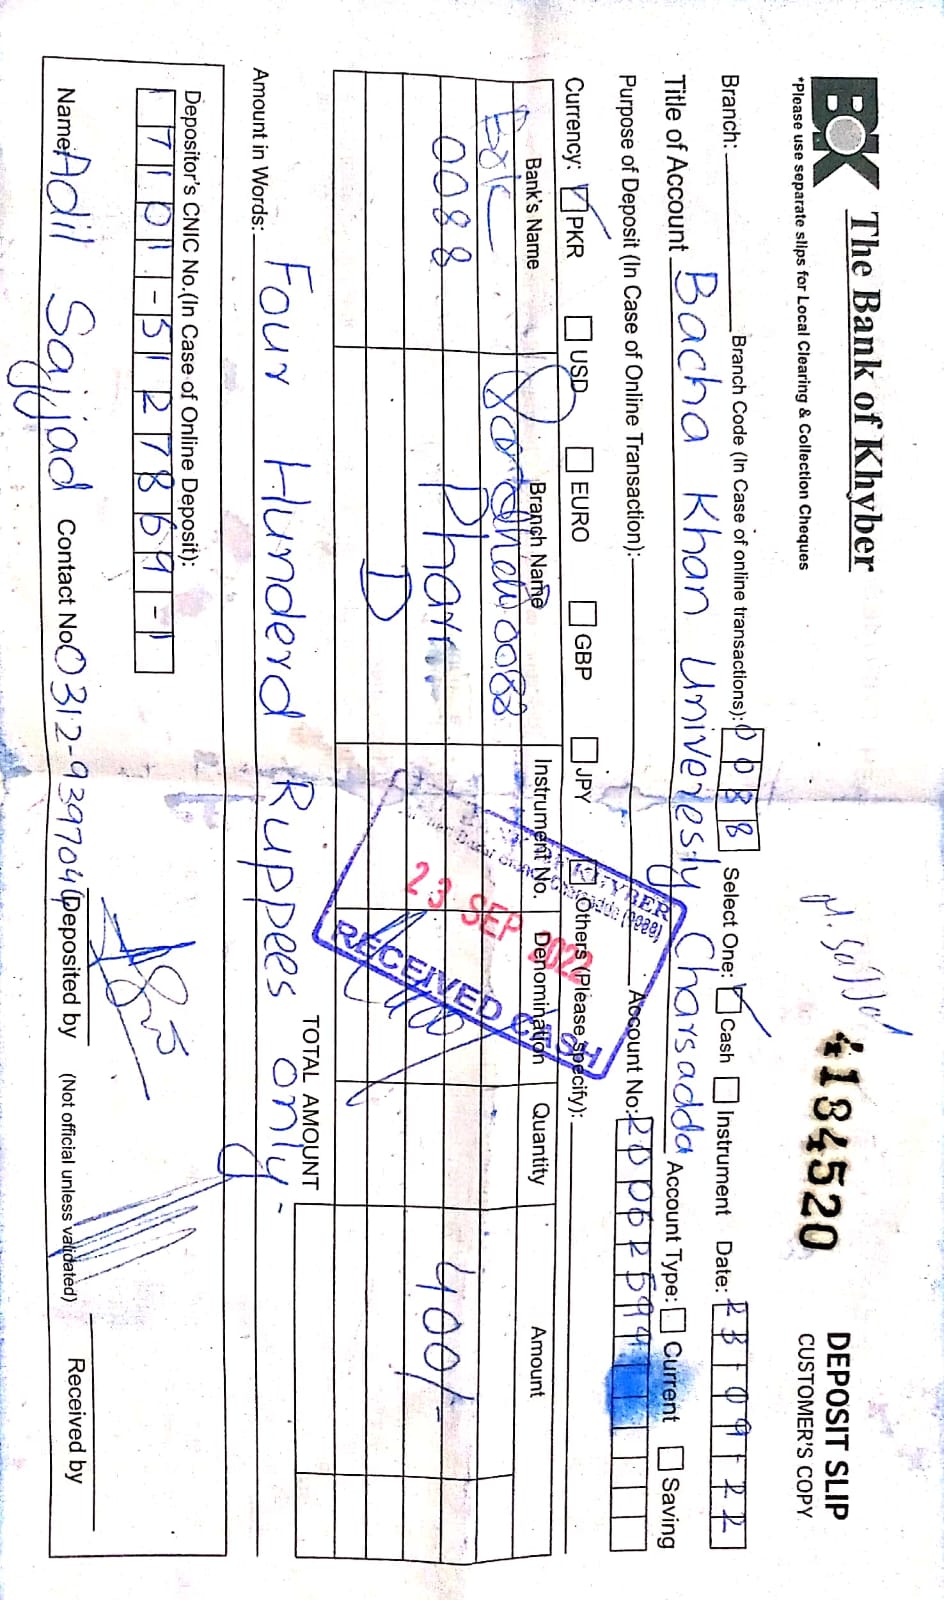 BOK The Bank of Khyber
*Please use separate slips for Local Clearing & Collection Cheques
4184520
DEPOSIT SLIP
CUSTOMER'S COPY
Branch: Branch Code (In Case of online transactions): 0088 Select One: Cash Instrument Date: 23-09-22
Title of Account Bacha Khan University Charsadda Account Type: Current Saving
Purpose of Deposit (In Case of Online Transaction): Account No: 20062599
Currency: PKR USD EURO GBP JPY Others (Please specify):
Bank's Name Branch Name Instrument No. Denomination Quantity Amount
BOK 0088
0088 Pharm.. 400/-
D
KHYBER
(0088)
23 SEP 2022
RECEIVED CASH
TOTAL AMOUNT
Amount in Words: Four Hunderd Ruppees only-
Depositor's CNIC No.(In Case of Online Deposit):
17101-5127869-1
Name: Adil Sajjad Contact No 0312-9397041 Deposited by (Not official unless validated) Received by